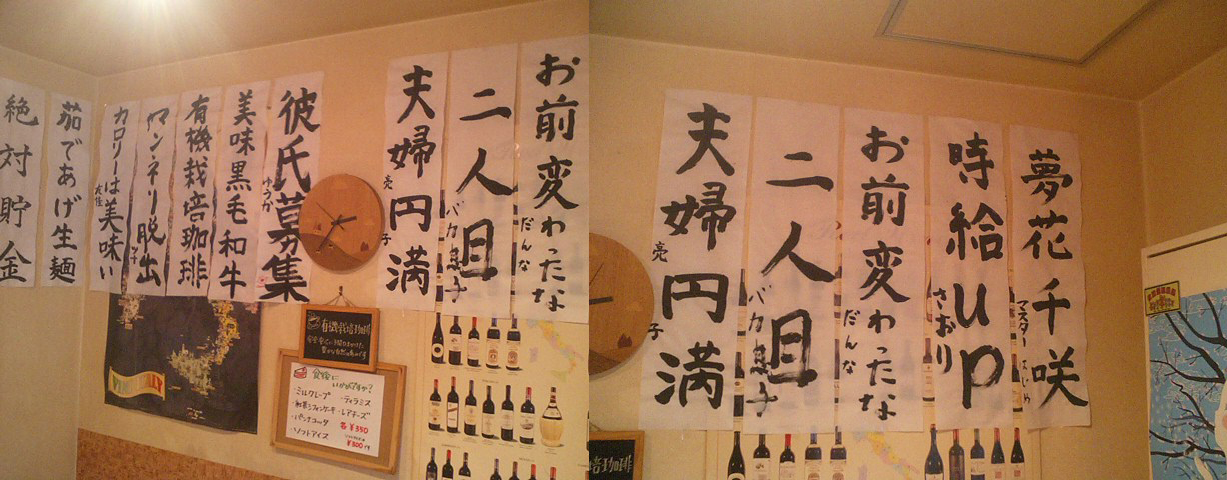 絶対貯金
茹であげ生麺
カロリーは美味い
マンネリ脱出
有機栽培珈琲
美味黒毛和牛
彼氏募集
ゆうか
夫婦円満
亮
子
二人目
バカ息子
お前変わったな
だんな
有機栽培珈琲
食後に
いかがですか?
・ミルクレープ
・ティラミス
・レアチーズ
・パンナコッタ
各¥350
・ソフトアイス
¥300
夫婦円満
亮
子
二人目
バカ息子
お前変わったな
だんな
時給up
さおり
夢花千咲
マスター はじめ
培珈琲